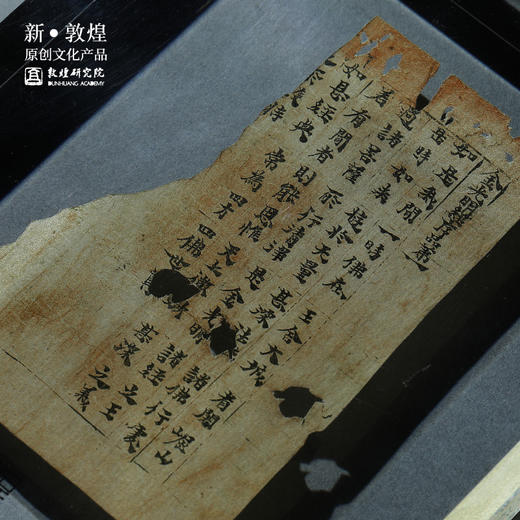 新·敦煌
原创文化产品
敦煌研究院
DUNHUANG ACADEMY
金光明經序品第一
如是我聞一時佛在王舍大城耆闍崛山
是時如來遊於无量甚深法諸佛行處
過諸菩薩所行清淨是金光明諸經之王
若有聞者則能思惟无上微甚深之義
如是經典常為四方四佛世